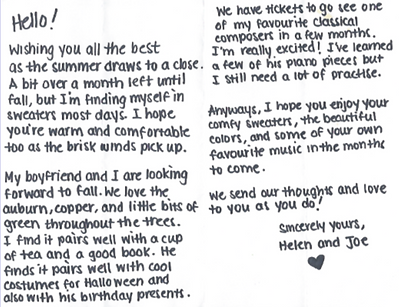 Hello!
Wishing you all the best
as the summer draws to a close.
A bit over a month left until
fall, but I'm finding myself in
sweaters most days. I hope
you're warm and comfortable
too as the brisk winds pick up.
My boyfriend and I are looking
forward to fall. We love the
auburn, copper, and little bits of
green throughout the trees.
I find it pairs well with a cup
of tea and a good book. He
finds it pairs well with cool
costumes for Halloween and
also with his birthday presents.
We have tickets to go see one
of my favourite classical
composers in a few months.
I'm really excited! I've learned
a few of his piano pieces but
I still need a lot of practise.
Anyways, I hope you enjoy your
comfy sweaters, the beautiful
colors, and some of your own
favourite music in the months
to come.
We send our thoughts and love
to you as you do!
Sincerely yours,
Helen and Joe